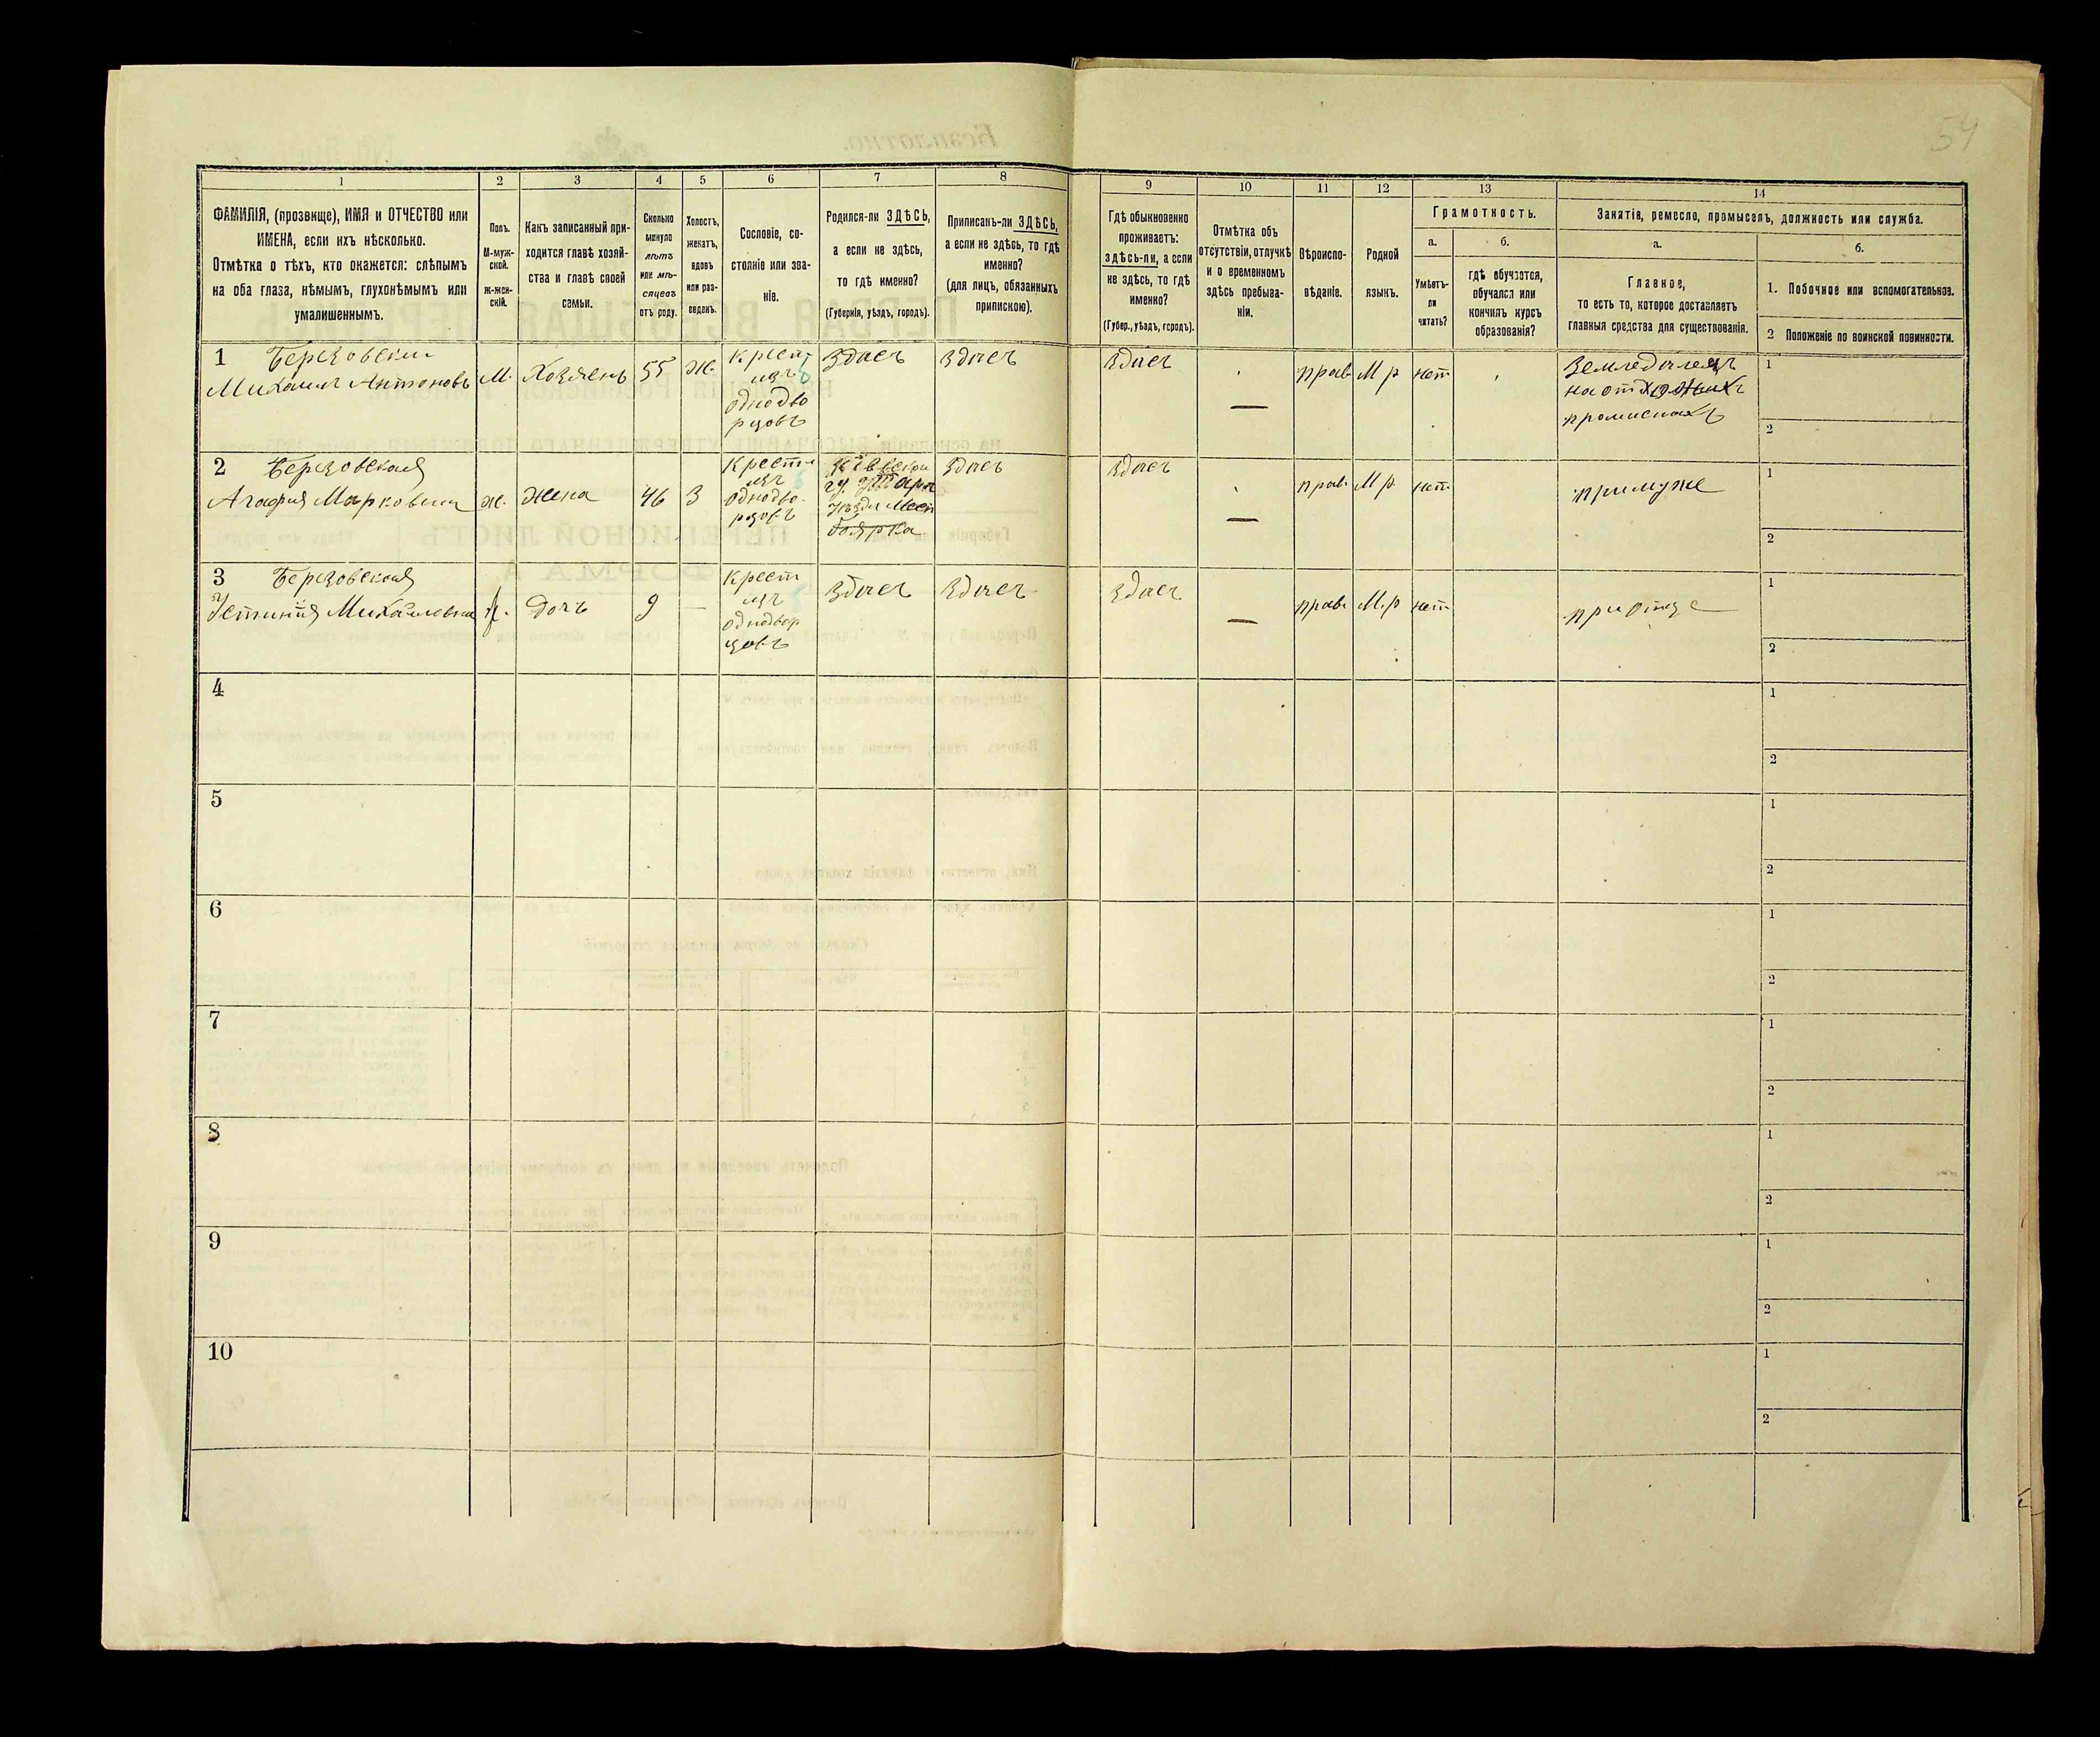 54
1 2 3 4 5 6 7 8 9 10 11 12 13 14
ФАМИЛІЯ, (прозвище), ИМЯ и ОТЧЕСТВО или
ИМЕНА, если ихъ нѣсколько.
Отмѣтка о тѣхъ, кто окажется: слѣпымъ
на оба глаза, нѣмымъ, глухонѣмымъ или
умалишеннымъ.
Полъ.
М-муж-
ской.
ж-жен-
скій.
Какъ записанный при-
ходится главѣ хозяй-
ства и главѣ своей
семьи.
Сколько
минуло
лѣтъ
или мѣ-
сяцевъ
отъ роду.
Холостъ,
женатъ,
вдовъ
или раз-
веденъ.
Сословіе, со-
стояніе или зва-
ніе.
Родился-ли ЗДѢСЬ,
а если не здѣсь,
то гдѣ именно?
(Губернія, уѣздъ, городъ).
Приписанъ-ли ЗДѢСЬ,
а если не здѣсь, то гдѣ
именно?
(для лицъ, обязанныхъ
припискою).
Гдѣ обыкновенно
проживаетъ:
здѣсь-ли, а если
не здѣсь, то гдѣ
именно?
(Губер., уѣздъ, городъ).
Отмѣтка объ
отсутствіи, отлучкѣ
и о временномъ
здѣсь пребыва-
ніи.
Вѣроиспо-
вѣданіе.
Родной
языкъ.
Грамотность.
а.
Умѣетъ-
ли
читать?
б.
гдѣ обучается,
обучался или
кончилъ курсъ
образованія?
Занятіе, ремесло, промыселъ, должность или служба.
а.
Главное,
то есть то, которое доставляетъ
главныя средства для существованія.
б.
1. Побочное или вспомогательное.
2 Положеніе по воинской повинности.
1 Березовский
Михаил Антоновъ
М.
Хозяенъ
55
Ж.
Крест
изъ
однодво
рцовъ
Здесъ
Здесъ
Здесъ
—
прав
М р
нет
на от
1
2
2 Березовская
Агафия Марковна
ж.
жена
46
З
Крест
изъ
однодво-
рцовъ
Боярка
Здесъ
Здесъ
—
прав.
М р.
нет
примуже
1
2
3 Березовская
Устиния Михайловна
дочъ
9
—
Крест
изъ
однодвор
цовъ
Здесъ
Здесъ
Здесъ
—
прав.
М.р
нет
приотце
1
2
4
1
2
5
1
2
6
1
2
7
1
2
8
1
2
9
1
2
10
1
2